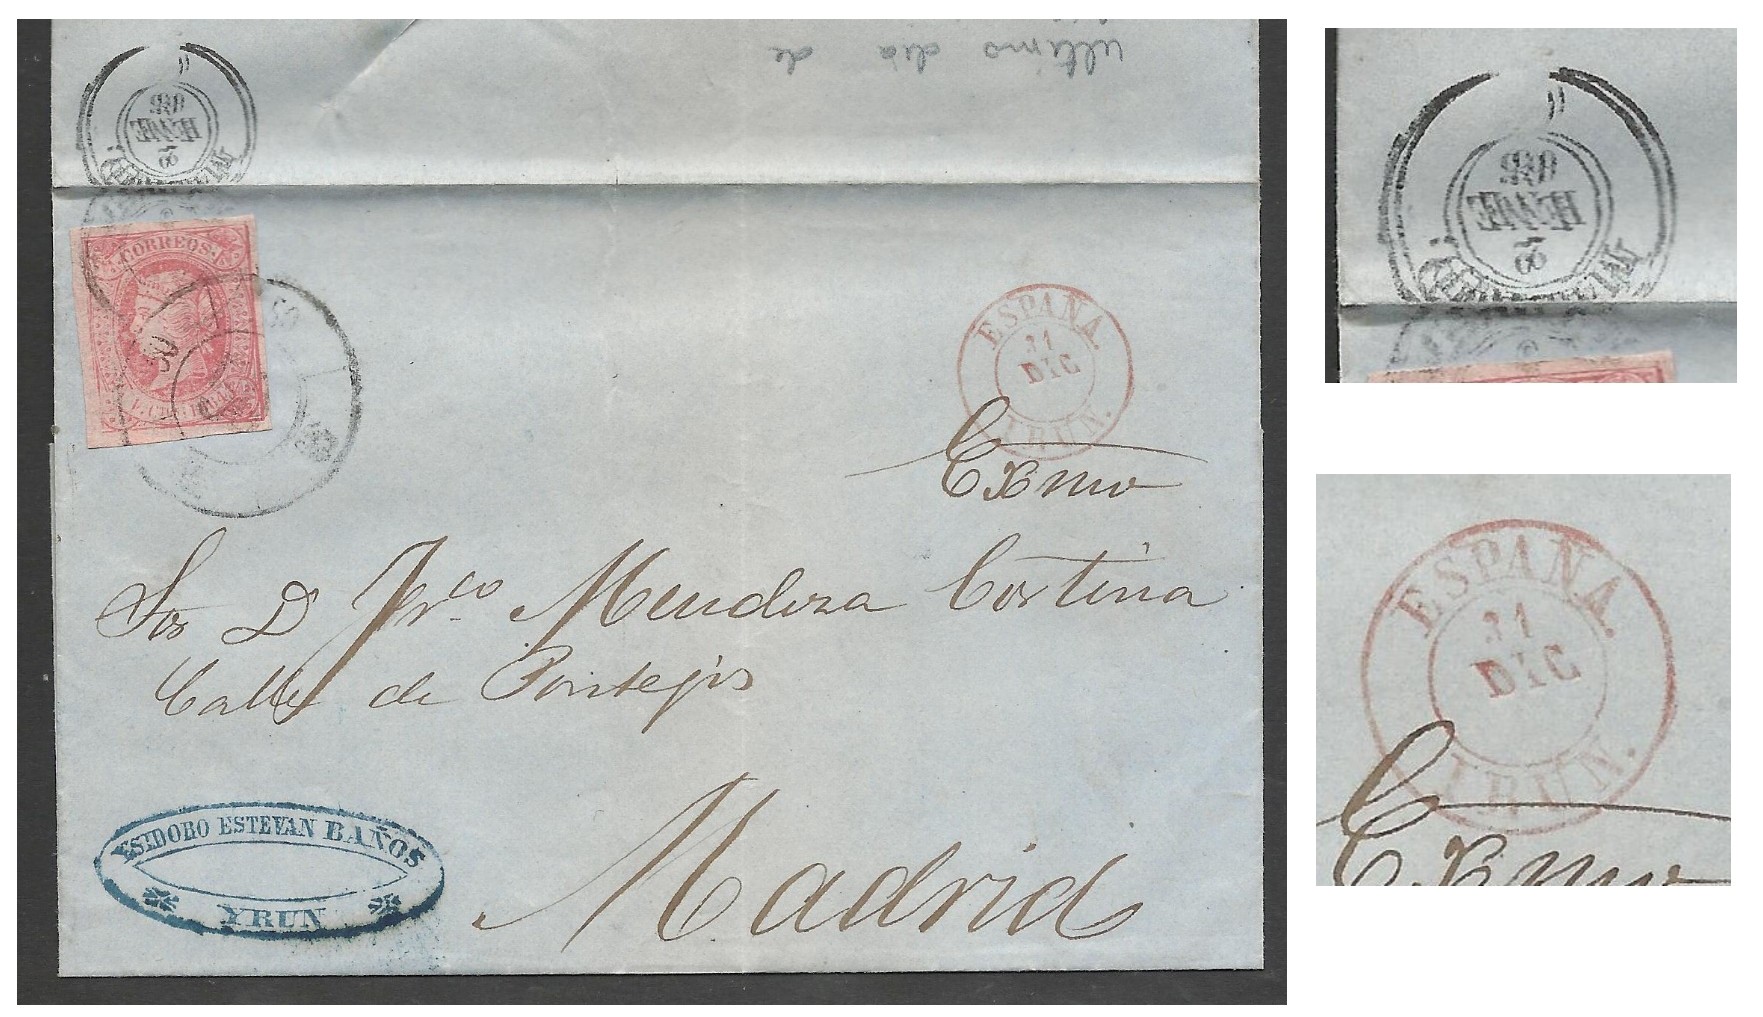 ultimo dia de
CORREOS
ESPAÑA.
31
DIC
IRUN.
Exmo
Sor D Frco Mendoza Cortina
Calle de Pontejos
Madrid
YSIDORO ESTEVAN BAÑOS
YRUN
ESPAÑA.
31
DIC
IRUN.
Exmo